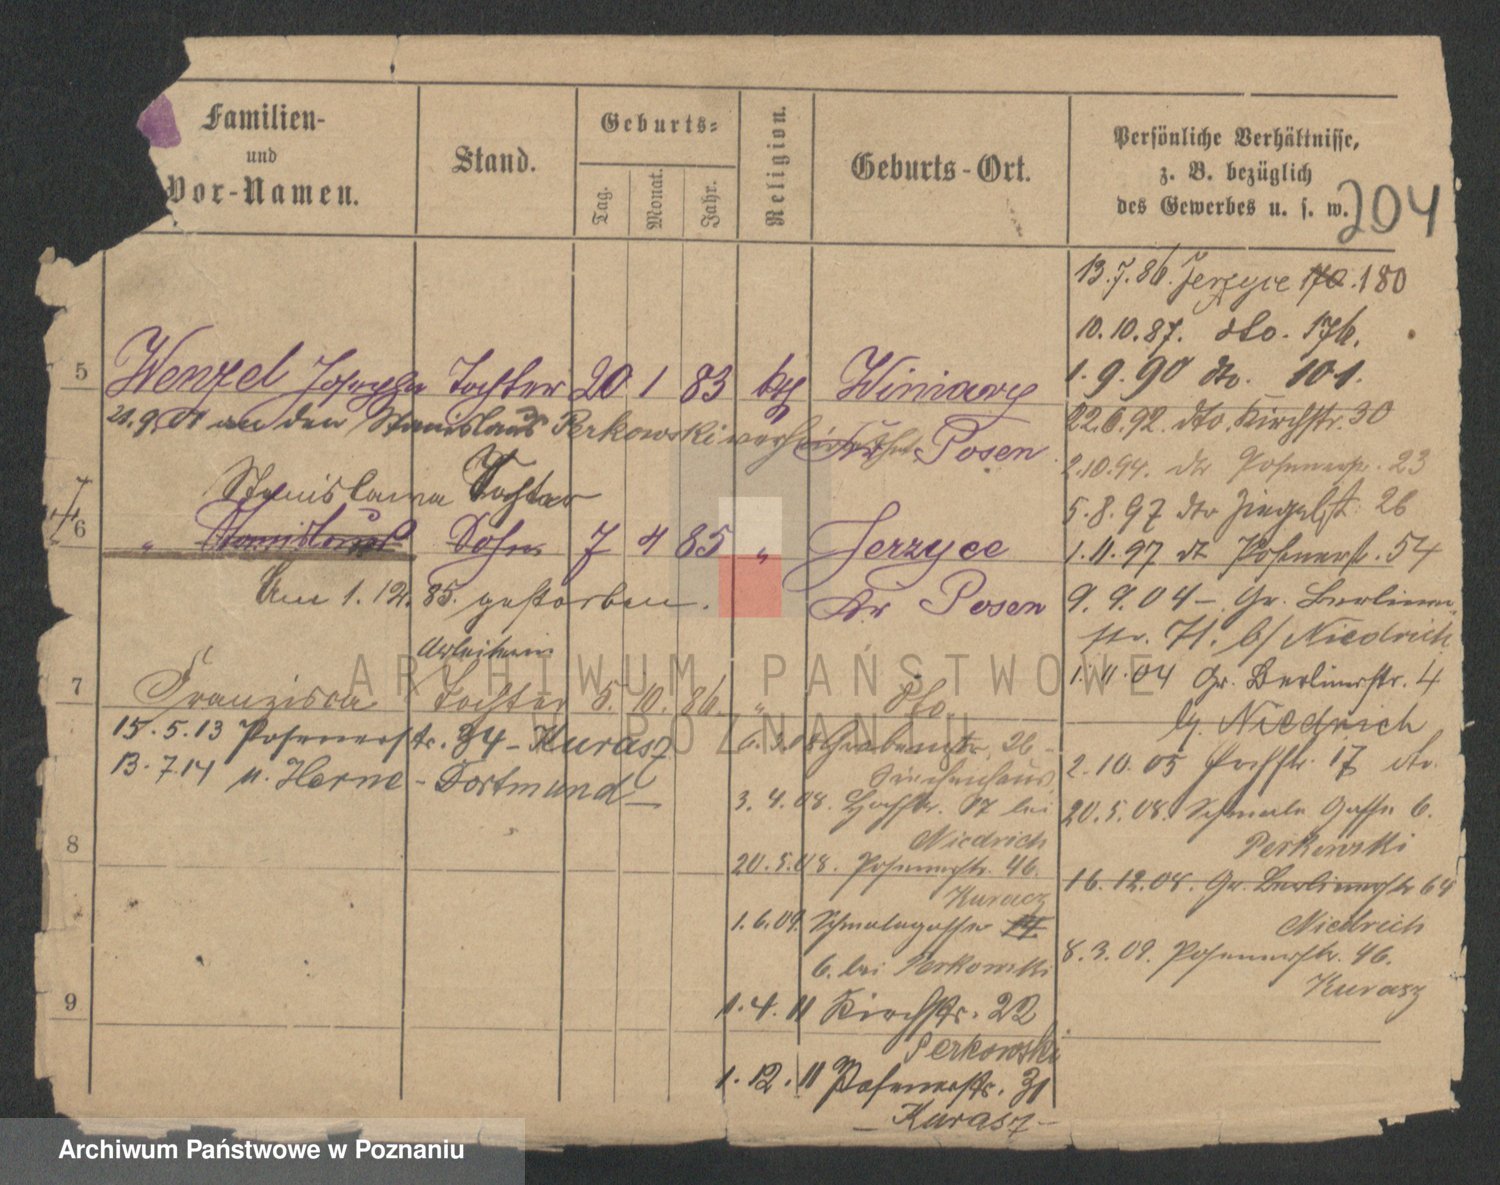 Familien-
und
Vor-Namen.
Stand.
Geburts-
Tag.
Monat.
Jahr.
Religion.
Geburts-Ort.
Persönliche Verhältnisse,
z. B. bezüglich
des Gewerbes u. s. w.
204
5 Wenzel Josepha Tochter 20 1 83 kth Winiary
21.9.01 an den Stanislaus Perkowski verheirathet
Kr Posen
Stanislawa Tochter
7
6 " Stanislaus Sohn 7 4 85 " Jerzyce
Am 1.12.85. gestorben.
Kr Posen
Arbeiterin
7 Franzisca Tochter 5. 10. 86. " dto.
15.5.13 Posenerstr. 34 - Kurasz
13.7.14 n. Herne - Dortmund -
8
9
6.3.08 Grabenstr. 26 -
Siechenhaus
3.4.08. 17 bei
Niedrich
20.5.08. Posenerstr. 46.
Kuracz
1.6.09. Schmalegasse
6. bei Perkowski
1.4.11 Kirchstr. 22
Perkowski
1.12.11 Posenerstr. 31
- Kurasz -
13.7.86. Jerzyce 170. 180
10.10.87. dto. 176.
1.9.90 dto. 101.
22.6.92. dto. Kirchstr. 30
2.10.94. dto Posenerstr. 23
5.8.97 dto Ziegelst. 26
1.11.97 dt Posenerstr. 54
9.9.04 - Gr. Berliner
str. 71. b/ Niedrich
1.11.04 Gr. Berlinerstr. 4
b/ Niedrich
2.10.05 17 dto.
20.5.08. Schmale Gasse 6.
Perkowski
16.12.08. Gr. Berlinerstr 64
Niedrich
8.3.09. Posenerstr. 46.
Kurasz
ARCHIWUM PAŃSTWOWE
W POZNANIU
Archiwum Państwowe w Poznaniu